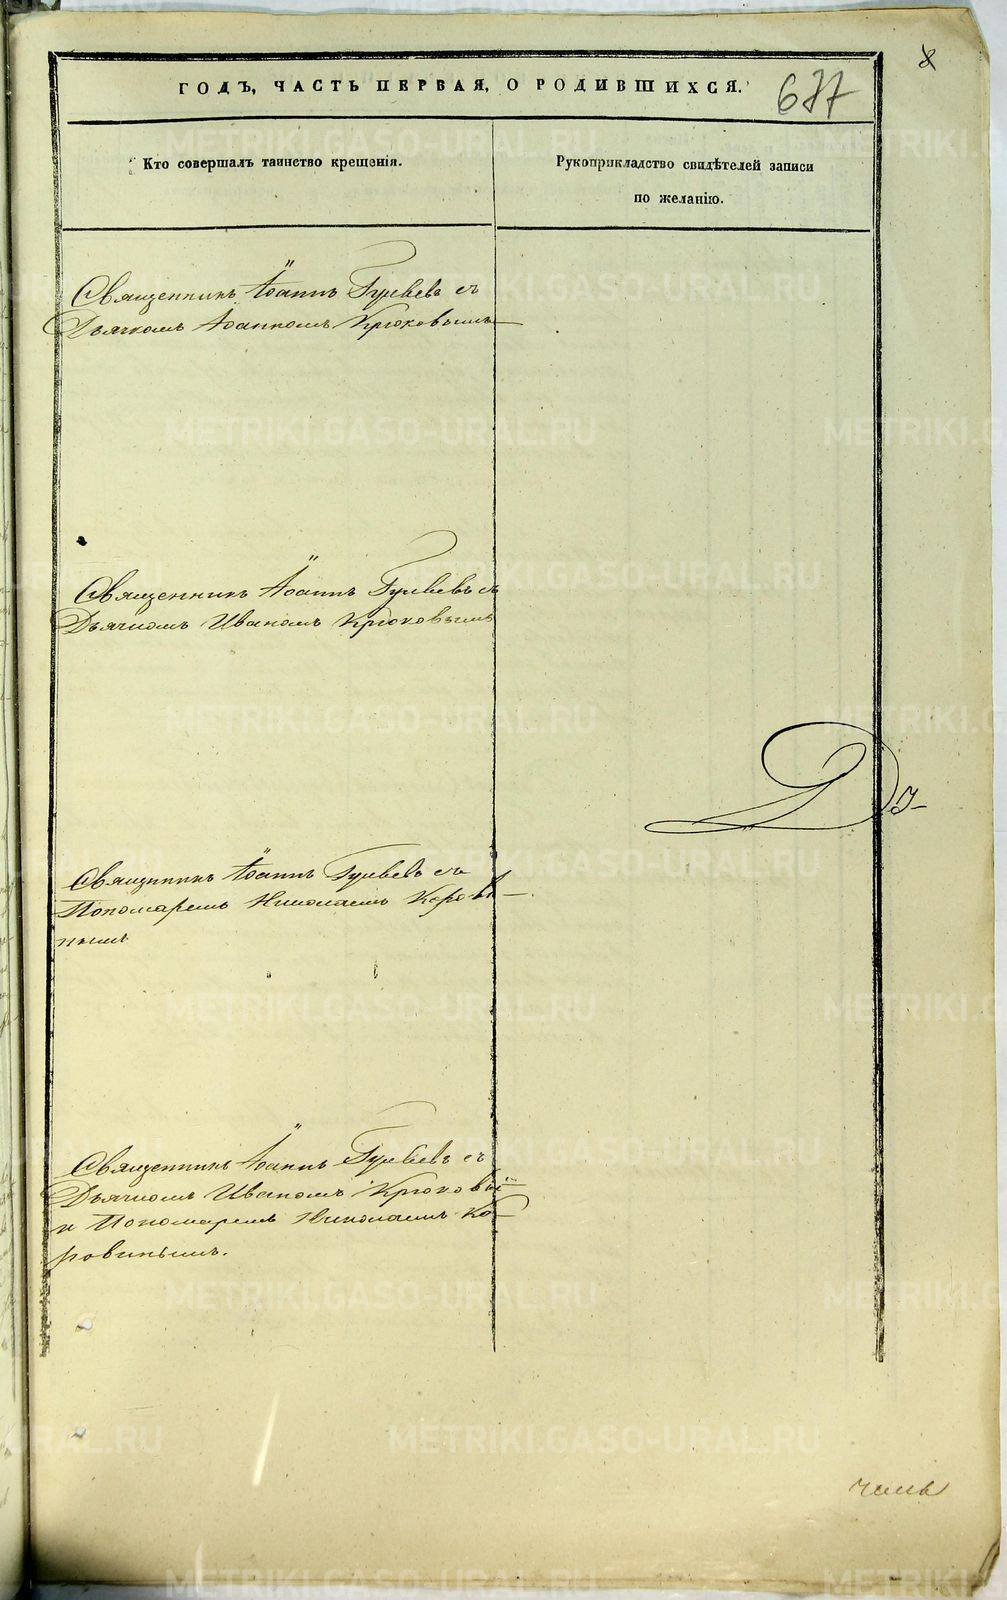 ГОДЪ, ЧАСТЬ ПЕРВАЯ, О РОДИВШИХСЯ.
677
Кто совершалъ таинство крещенія.
Рукоприкладство свидѣтелей записи
по желанію.
Священникъ Іоаннъ Гулевъ съ
Дьячкомъ Іоанномъ Крюковымъ
Священникъ Іоаннъ Гулевъ съ
Дьячкомъ Иваномъ Крюковымъ
Священникъ Іоаннъ Гулевъ съ
Пономаремъ Николаемъ Корови-
нымъ
Священникъ Іоаннъ Гулевъ съ
Дьячкомъ Иваномъ Крюковы
и Пономаремъ Николаемъ Ко-
ровинымъ.
METRIKI.GASO-URAL.RU